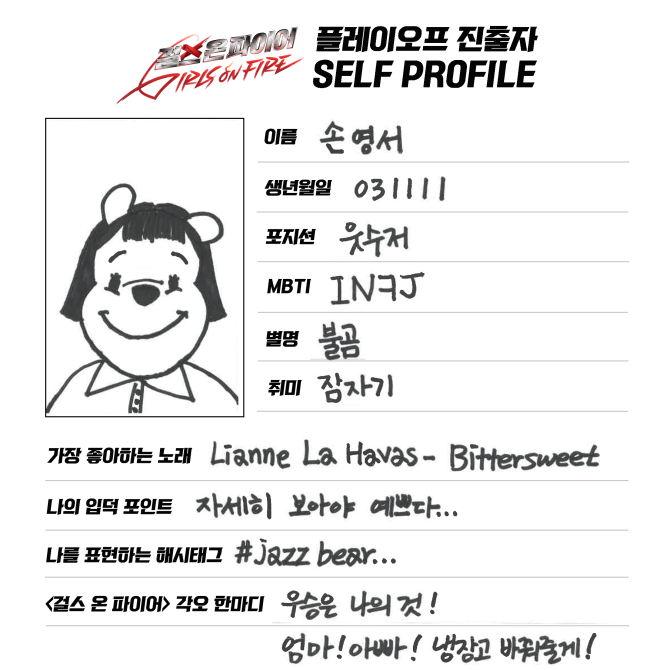 걸스 온 파이어 플레이오프 진출자
GIRLS ON FIRE SELF PROFILE
이름 손영서
생년월일 031111
포지션 웃수저
MBTI INFJ
별명 불곰
취미 잠자기
가장 좋아하는 노래 Lianne La Havas - Bittersweet
나의 입덕 포인트 자세히 보아야 예쁘다...
나를 표현하는 해시태그 #jazz bear...
<걸스 온 파이어> 각오 한마디 우승은 나의 것!
엄마! 아빠! 냉장고 바꿔줄게!